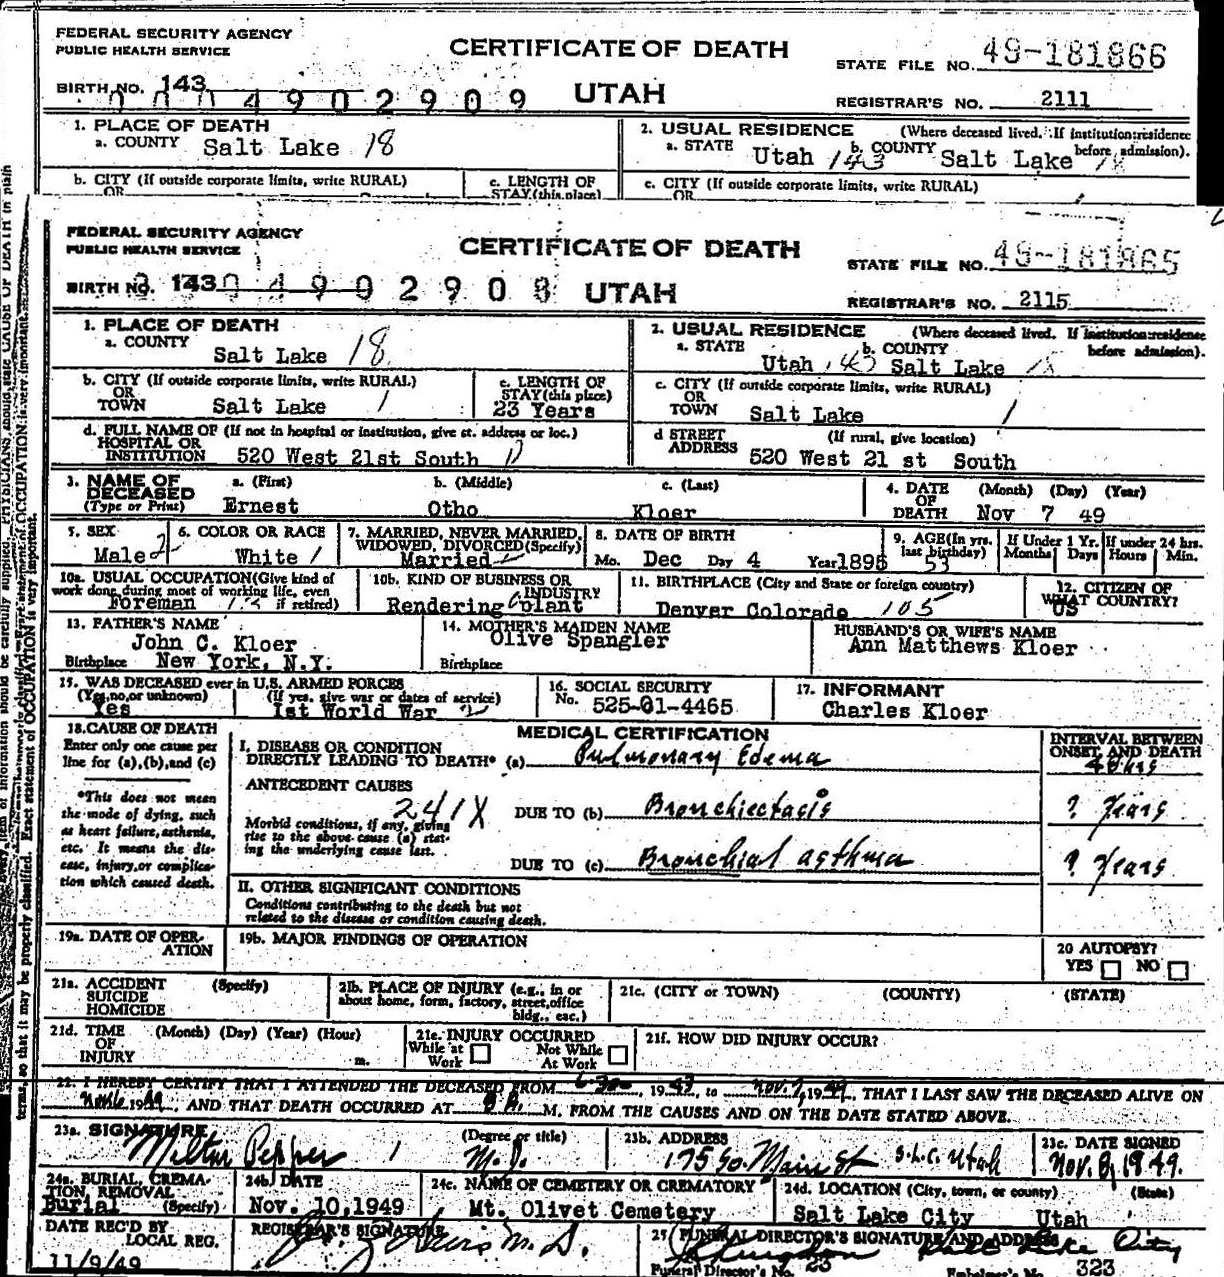 FEDERAL SECURITY AGENCY
PUBLIC HEALTH SERVICE
CERTIFICATE OF DEATH
STATE FILE NO. 49-181866
BIRTH NO. 143
0004902909
UTAH
REGISTRAR'S NO. 2111
1. PLACE OF DEATH
a. COUNTY Salt Lake 18
2. USUAL RESIDENCE (Where deceased lived. If institution: residence before admission).
a. STATE Utah 143 b. COUNTY Salt Lake 18
b. CITY (If outside corporate limits, write RURAL)
OR
c. LENGTH OF
STAY (this place)
c. CITY (If outside corporate limits, write RURAL)
OR
FEDERAL SECURITY AGENCY
PUBLIC HEALTH SERVICE
CERTIFICATE OF DEATH
STATE FILE NO. 49-181865
BIRTH NO. 143
04902908
UTAH
REGISTRAR'S NO. 2115
1. PLACE OF DEATH
a. COUNTY
Salt Lake 18
2. USUAL RESIDENCE (Where deceased lived. If institution: residence before admission).
a. STATE Utah 143 b. COUNTY Salt Lake 18
b. CITY (If outside corporate limits, write RURAL)
OR
TOWN Salt Lake 1
c. LENGTH OF
STAY (this place)
23 Years
c. CITY (If outside corporate limits, write RURAL)
OR
TOWN Salt Lake 1
d. FULL NAME OF (If not in hospital or institution, give st. address or loc.)
HOSPITAL OR
INSTITUTION 520 West 21st South
d STREET (If rural, give location)
ADDRESS 520 West 21 st South
3. NAME OF DECEASED (Type or Print)
a. (First) b. (Middle) c. (Last)
Ernest Otho Kloer
4. DATE OF DEATH (Month) (Day) (Year)
Nov 7 49
5. SEX
Male 2
6. COLOR OR RACE
White 1
7. MARRIED, NEVER MARRIED, WIDOWED, DIVORCED (Specify)
Married
8. DATE OF BIRTH
Mo. Dec Day 4 Year 1895
9. AGE (In yrs. last birthday)
53
If Under 1 Yr. Months Days
If under 24 hrs. Hours Min.
10a. USUAL OCCUPATION (Give kind of work done during most of working life, even if retired)
Foreman
10b. KIND OF BUSINESS OR INDUSTRY
Rendering plant
11. BIRTHPLACE (City and State or foreign country)
Denver Colorado 105
12. CITIZEN OF WHAT COUNTRY?
US
13. FATHER'S NAME
John C. Kloer
Birthplace New York, N.Y.
14. MOTHER'S MAIDEN NAME
Olive Spangler
Birthplace
HUSBAND'S OR WIFE'S NAME
Ann Matthews Kloer
15. WAS DECEASED ever in U.S. ARMED FORCES
(Yes, no, or unknown) (If yes, give war or dates of service)
Yes 1st World War 2
16. SOCIAL SECURITY
No. 525-01-4465
17. INFORMANT
Charles Kloer
18. CAUSE OF DEATH
Enter only one cause per line for (a), (b), and (c)
*This does not mean the mode of dying, such as heart failure, asthenia, etc. It means the disease, injury, or complication which caused death.
MEDICAL CERTIFICATION
I. DISEASE OR CONDITION
DIRECTLY LEADING TO DEATH* (a) Pulmonary Edema
INTERVAL BETWEEN ONSET AND DEATH
48 hrs
ANTECEDENT CAUSES
241X
Morbid conditions, if any, giving rise to the above cause (a) stating the underlying cause last.
DUE TO (b) Bronchiectasis ? Years
DUE TO (c) Bronchial asthma ? Years
II. OTHER SIGNIFICANT CONDITIONS
Conditions contributing to the death but not related to the disease or condition causing death.
19a. DATE OF OPERATION
19b. MAJOR FINDINGS OF OPERATION
20 AUTOPSY?
YES NO
21a. ACCIDENT (Specify)
SUICIDE
HOMICIDE
21b. PLACE OF INJURY (e.g., in or about home, form, factory, street, office bldg., etc.)
21c. (CITY or TOWN) (COUNTY) (STATE)
21d. TIME (Month) (Day) (Year) (Hour)
OF
INJURY m.
21e. INJURY OCCURRED
While at Work Not While At Work
21f. HOW DID INJURY OCCUR?
22. I HEREBY CERTIFY THAT I ATTENDED THE DECEASED FROM 6-30, 1947, to Nov. 7, 1949, THAT I LAST SAW THE DECEASED ALIVE ON
Nov 6 1949, AND THAT DEATH OCCURRED AT 8 A. M, FROM THE CAUSES AND ON THE DATE STATED ABOVE.
23a. SIGNATURE (Degree or title)
Milton Pepper M.D.
23b. ADDRESS
175 So. Main St S.L.C. Utah
23c. DATE SIGNED
Nov. 8, 1949.
24a. BURIAL, CREMATION, REMOVAL (Specify)
Burial
24b. DATE
Nov. 10, 1949
24c. NAME OF CEMETERY OR CREMATORY
Mt. Olivet Cemetery
24d. LOCATION (City, town, or county) (State)
Salt Lake City Utah
DATE REC'D BY LOCAL REG.
11/9/49
REGISTRAR'S SIGNATURE
M.D.
25 FUNERAL DIRECTOR'S SIGNATURE AND ADDRESS
Salt Lake City
Funeral Director's No. 23
Embalmer's No. 323